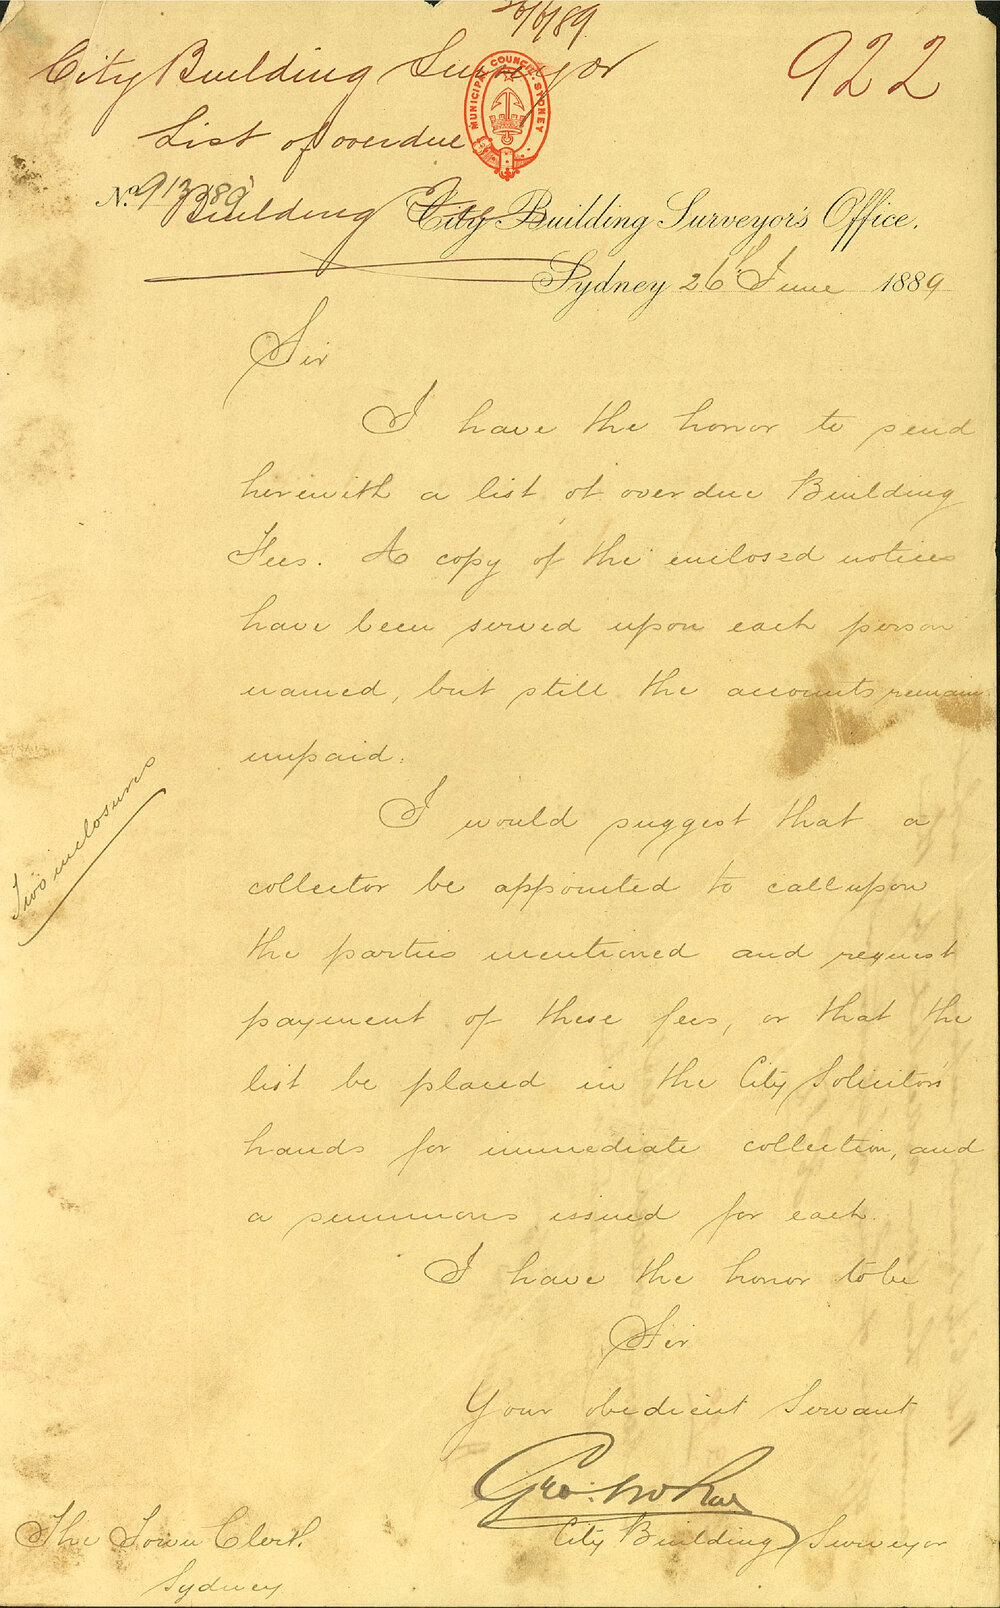 26/6/89
City Building Surveyor
922
MUNICIPAL COUNCIL SYDNEY
List of overdue
No. 913/89
Building Fees
City Building Surveyor's Office,
Sydney 26th June 1889
Sir
I have the honor to send
herewith a list of overdue Building
Fees. A copy of the enclosed notices
have been served upon each person
named, but still the accounts remain
unpaid.
Two enclosures
I would suggest that a
collector be appointed to call upon
the parties mentioned and request
payment of these fees, or that the
list be placed in the City Solicitors
hands for immediate collection, and
a summons issued for each.
I have the honor to be
Sir
Your obedient Servant
Geo:
City Building Surveyor
The Town Clerk.
Sydney